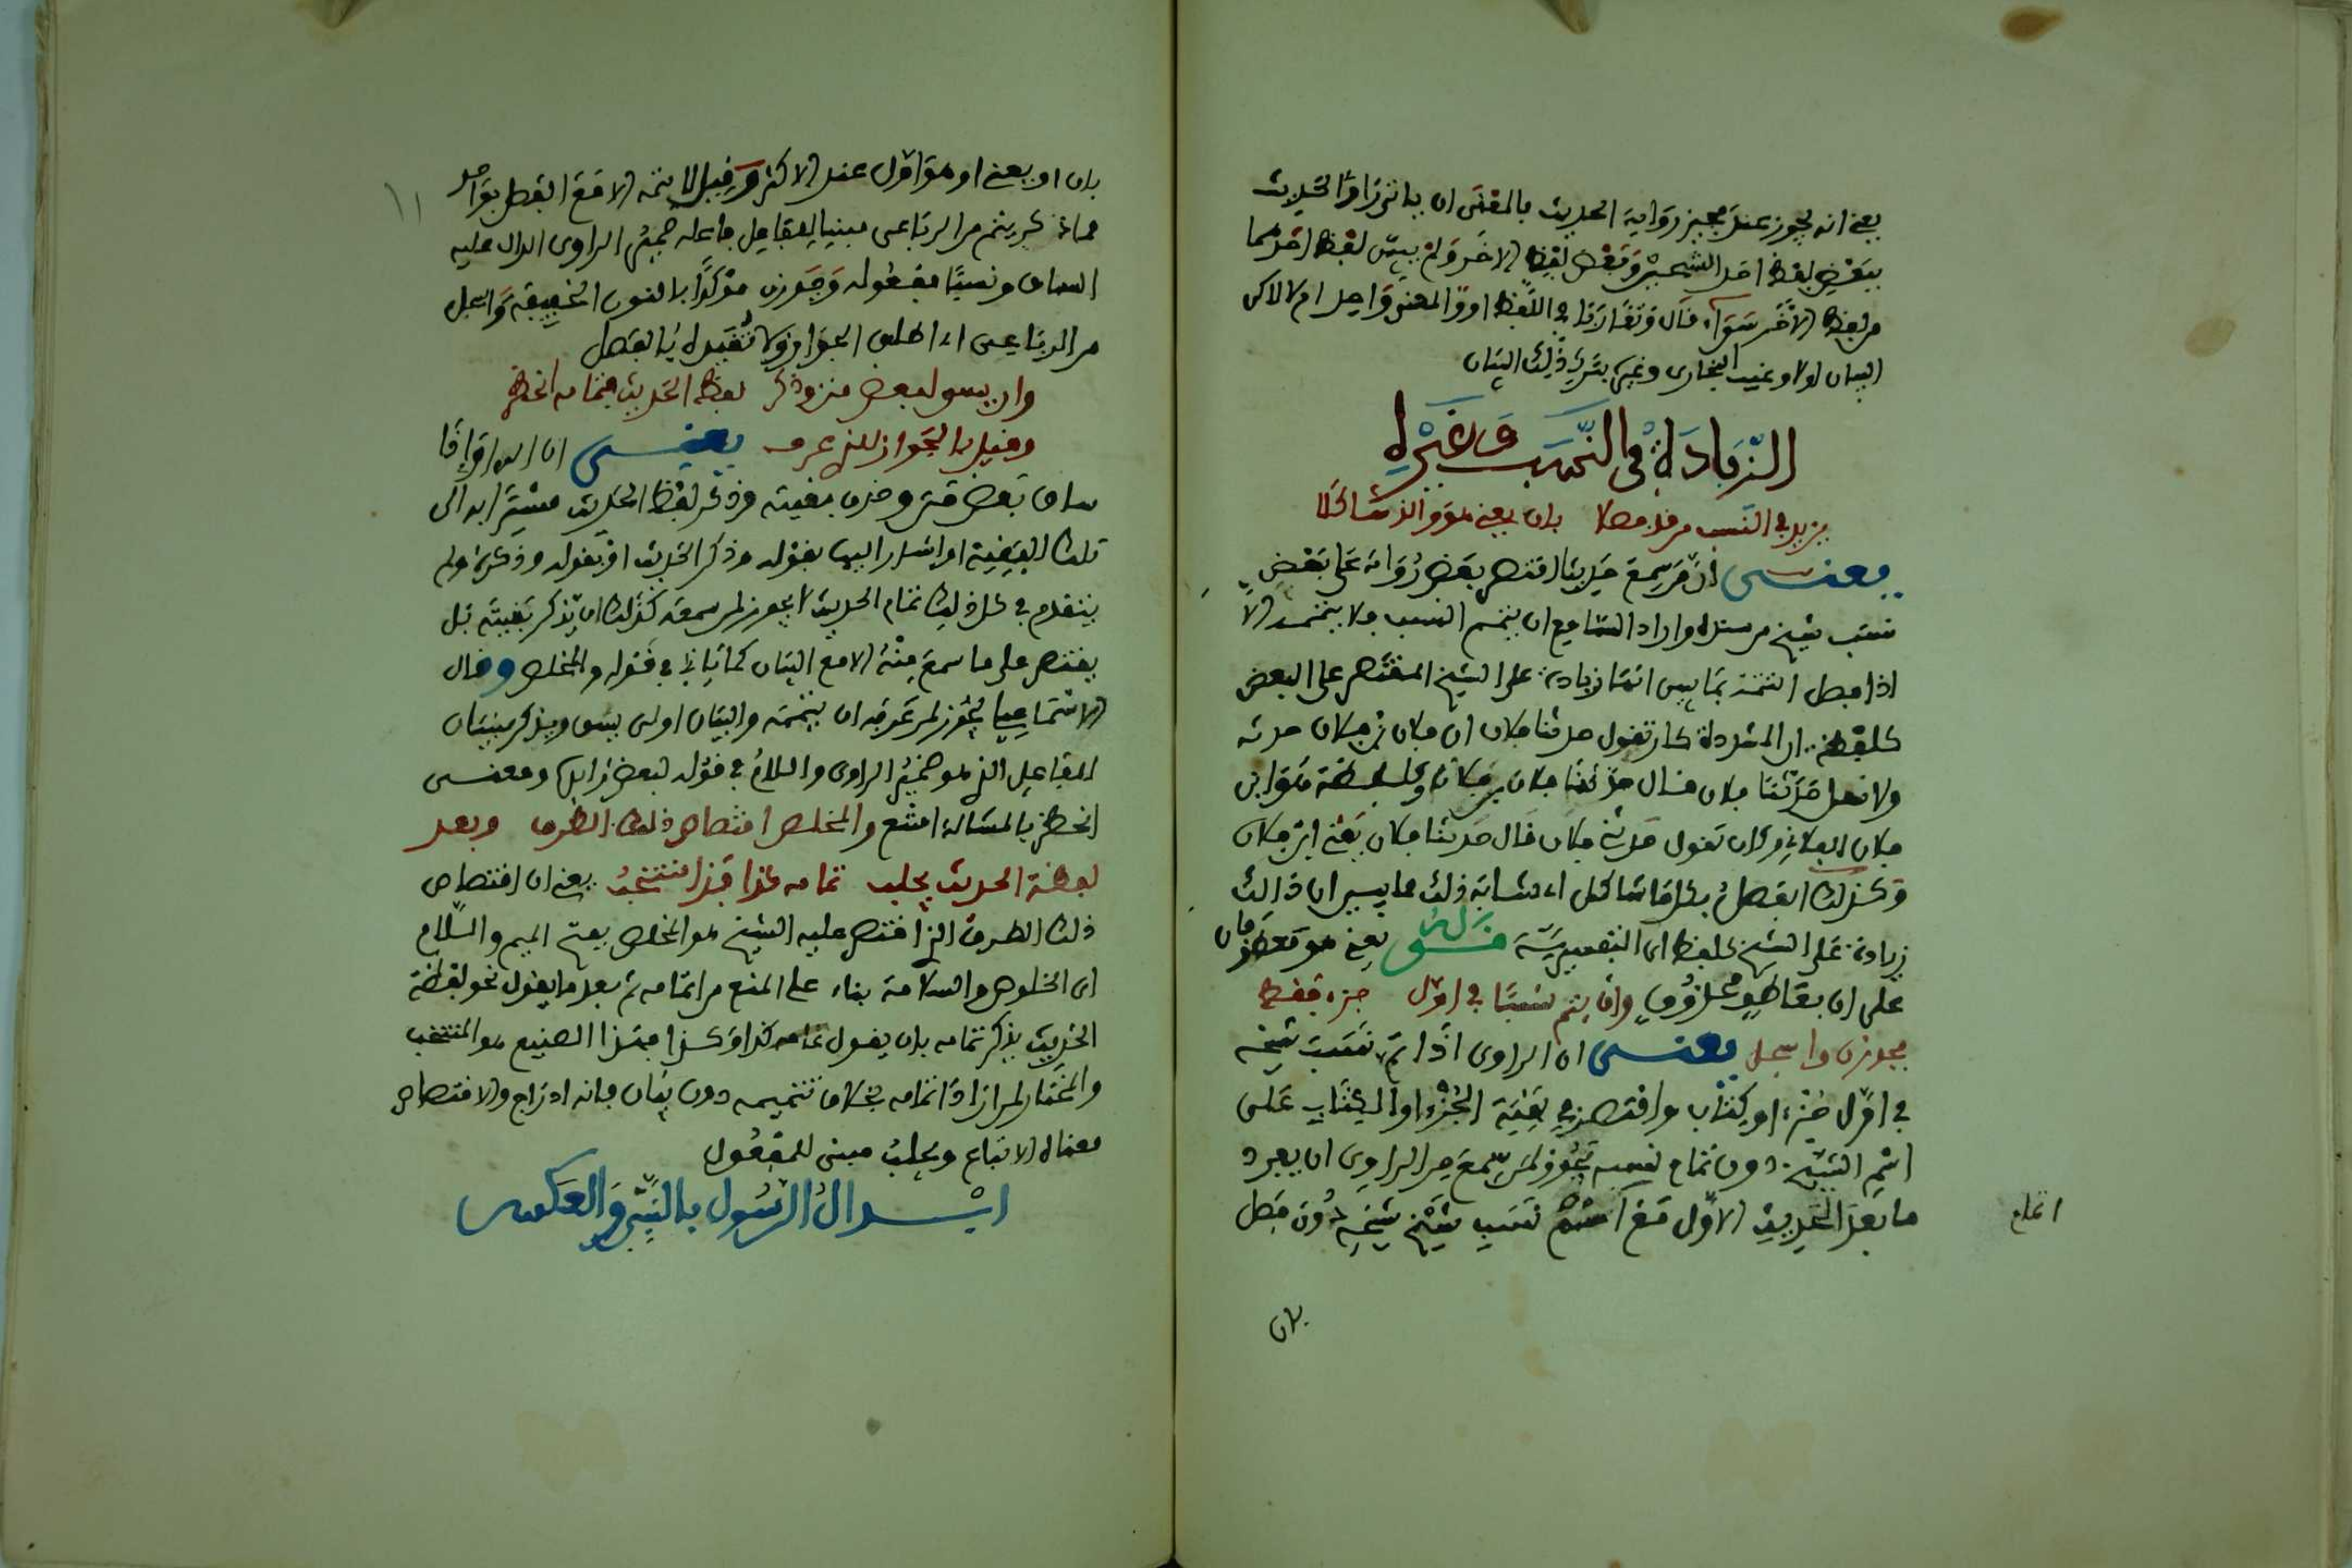 يعني انه يجوز عند مجيز رواية الحديث بالمعنى ان ياتي راو الحديث
ببعض لفظ احد الشيخين وبعض لفظ الاخر ولم يبين لفظ احدهما
من لفظ الاخر سواء قال وتقاربا في اللفظ او والمعنى واحد ام لا لاكن
البيان اولا وعيب البخاري وغيره بترك ذلك البيان
الزيادة في النسب وغيره
يزيد في النسب من فصلا بان يعني هو والذ شاكلا
يعنى ان من سمع حديثا اقتصر بعض رواته على بعض
نسب شيخ من سنده واراد السامع ان يتمم النسب فلا يتممه الا
اذا فصل التتمة بما يبين انها زيادة على الشيخ المقتصر على البعض
كلفظة ان المشددة كان تقول حدثنا فلان ان فلان بن فلان حدثه
ولا تقل حدثنا فلان قال حدثنا فلان بن فلان وكلفظة هو ابن
فلان الفلاني وكان تقول حدثني فلان قال حدثنا فلان يعني ابن فلان
وكذلك الفصل بكل ما شاكل اي شابه ذلك مما يبين ان ذالك
زيادة على الشيخ كلفظ اي التفسيرية قوله يعني هو معطوفان
على ان بعاطف محذوف وان يتم نسبا في اول جزء فقط
فجوزن واسجل يعنى ان الراوى اذا تمم نسب شيخه
في اول جزء او كتاب واقتصر في بقية الجزء او الكتاب على
اسم الشيخ دون تمام نسبه يجوز لمن سمع من الراوي ان يفرد
ما بعد الحديث الاول مع اتمام نسب شيخ شيخه دون فصل
بان
بان او يعني او هو اول عند الاكثر وقيل لا يتمه الا مع الفصل بواحد
مما ذكر يتم من الرباعي مبنيا للفاعل فاعله ضمير الراوى الدال عليه
السياق ونسبا مفعوله وجوزن مؤكدا بالنون الخفيفة واسجل
من الرباعي اي اطلق الجواز ولا تقيده بالفصل
وان يسق لبعض متن وذكر لفظ الحديث فتمامه انحظر
وقيل بالجواز للذ عرف يعنى ان الراوي اذا
ساق بعض متن وحذف بقيته وذكر لفظ الحديث مشيرا به الى
تلك البقية او اشار اليها بقوله وذكر الحديث او بقوله وذكره ولم
يتقدم في كل ذلك تمام الحديث لا يجوز لمن سمعه كذلك ان يذكر بقيته بل
يقتصر على ما سمع منه الا مع البيان كما ياتي في قوله والمخلص وقال
الاسماعيلي يجوز لمن عرفه ان يتممه والبيان اولى يسق ويذكر مبنيان
للفاعل الذ هو ضمير الراوى واللام في قوله لبعض زايدة ومعنى
انحظر بالمشالة امتنع والمخلص اقتصاص ذلك الطرف وبعد
لفظة الحديث يجلب تمامه كذا فذا منتخب يعني ان اقتصاص
ذلك الطرف الذ اقتصر عليه الشيخ هو المخلص بفتح الميم واللام
اي الخلوص والسلامة بناء على المنع من اتمامه ثم بعد ما يقول نحو لفظة
الحديث يذكر تمامه بان يقول تمامه كذا وكذا فهذا الصنيع هو المنتخب
والمختار لمن اراد اتمامه بخلاف تتميمه دون بيان فانه ادراج والاقتصاص
معناه الاتباع ويجلب مبني للمفعول
ابدال الرسول بالنبي والعكس